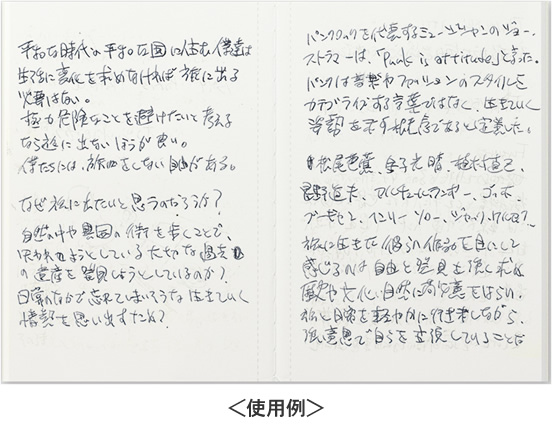 平和な時代の平和な国に住む僕達は
生活に変化を求めなければ旅に出る
必要はない。
極力危険なことを避けたいと考える
なら旅に出ないほうが良い。
僕たちには、旅をしない自由がある。
なぜ旅に出たいと思うのだろうか?
自然の中や異国の街を歩くことで、
失われようとしている大切な過去
の遺産を発見しようとしているのか?
日常のなかで忘れてしまいそうな生きていく
情熱を思い出すため?
パンクロックを代表するミュージシャンのジョー・
ストラマーは、「Punk is attitude」と言った。
パンクは音楽やファッションのスタイルを
カテゴライズする言葉ではなく、生きていく
姿勢を示す概念であると定義した。
松尾芭蕉、金子光晴、植村直己、
星野道夫、アルチュール・ランボー、ゴッホ、
ゴーギャン、ヘンリー・ソロー、ジャック・ケルアック…
旅に生きた彼らの作品を目にして
感じるのは自由と発見を強く求め
歴史や文化、自然に敬意をはらい、
旅と日常を軽やかに行き来しながら、
強い意思で自らを変復していることだ
<使用例>